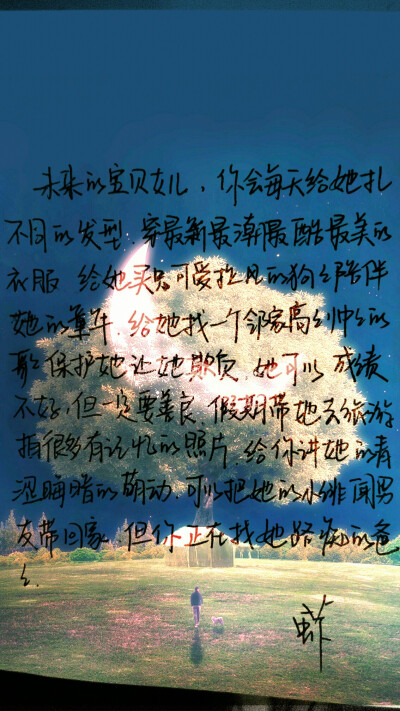 未来的宝贝女儿,你会每天给她扎
不同的发型.穿最新最潮最酷最美的
衣服 给她买只可爱拉风的狗々陪伴
她的童年.给她找一个邻家高々帅々的
哥々保护她让她欺负.她可以成绩
不好,但一定要善良.假期带她去旅游
拍很多有记忆的照片.给你讲她的青
涩晦暗的萌动.可以把她的小绯闻男
友带回家.但你正在找她路痴的爸
々.